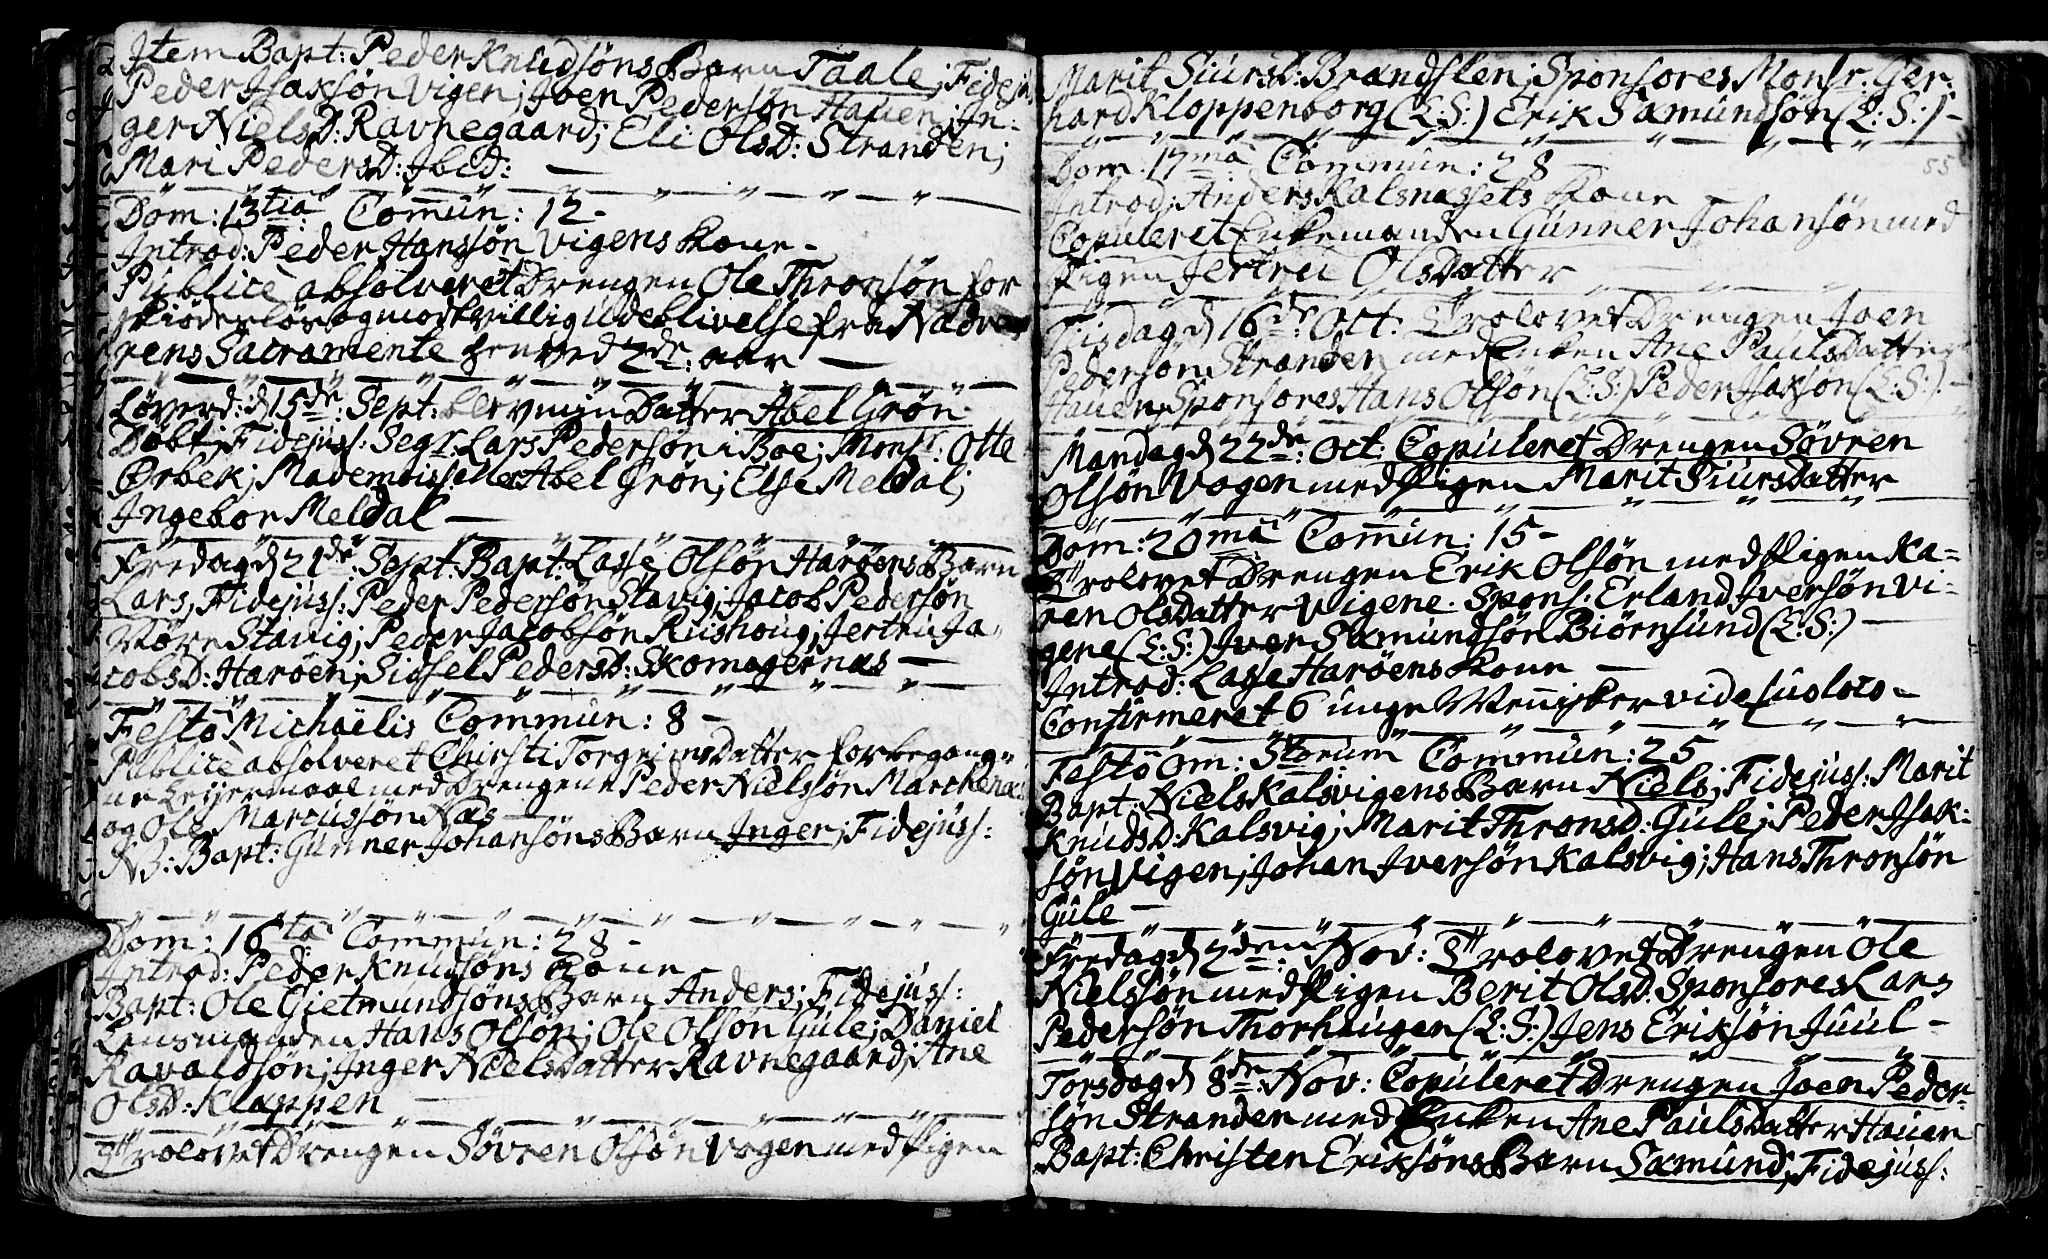 Item Bapt: Peder Knudsøns Barn Taale; Fidejus
Peder Isaksøn Vigen; Joen Pedersøn Hauen; In-
ger NielsD: Ravnegaard; Eli OlsD: Stranden;
Mari PedersD: Ibid: —
Dom: 13tia Com̄un: 12 -
Introd: Peder Hanssøn Vigens Kone -
Publicè absolveret Drengen Ole Thronsøn for
og modtvillig Udeblivelse fra Nadve
rens Sacramente henved 2de: aar —
Løverd: d 15de: Sept: blev min Datter Abel Grøn
Døbt; Fidejuss: Segr. Lars Pedersøn i Boe; Monsr: Otte
Ørbek; Mademoisselle Abel Grøn; Else Meldal;
Ingebor Meldal —
Fredag d 21de: Sept: Bapt: Lasse Olsøn Harøens Barn
Lars, Fidejuss: Peder Pedersøn Stavig; Jacob Pedersøn
Møre Stavig; Peder Jacobsøn Rushoug; Jertru Ja-
cobsD: Harøen; Sissel PedersD: Skomagernæs —
Festo Michaëlis Commun: 8 -
Publicè absolveret Christi Torgeirsdatter for begang-
ne Leyermaal med Drengene Peder Nielssøn Marchenæs
og Ole Marcussøn Næs —
NB: Bapt: Gunner Johansøns Barn Inger; Fidejuss:
Dom: 16ta Commun: 28 -
Introd: Peder Knudsøns Kone
Bapt: Ole Gietmundsøns Barn Anders; Fidejuss:
Lensmanden Hans Olsøn; Ole Olsøn Gule; Daniel
Ravaldsøn; Inger Nielsdatter Ravnegaard; Ane
OlsD: Klappen —
Trolovet Drengen Søvren Olsøn Vagen med Pigen
Marit SiursD: Brandslen; Sponsores Monsr. Ger-
hard Kloppenborg (L:S:) Erik Samundsøn (L:S:) -
55
Dom: 17ma Commun: 28 —
Introd: Anders Kalsnæssets Kone
Copuleret Enkemanden Gunner Johansøn med
Pigen Jertru Olsdatter
Tiisdag d 16de: Oct: Trolovet Drengen Joen
Pedersøn Stranden med Enken Ane Paulsdatter
Hauen, Sponsores Hans Olsøn (L:S:) Peder Isaksøn (L:S:) -
Mandag d 22de: Oct: Copuleret Drengen Søvren
Olsøn Vagen med Pigen Marit Siursdatter
Dom: 20ma Com̄un: 15 -
Trolovet Drengen Erik Olsøn med Pigen Ka-
ren Olsdatter Vigene. Spons: Erland Iversøn Vi-
gene (L:S:) Iver Sæmundsøn Biørnsund (L:S:) —
Introd: Lasse Harøens Kone —
Confirmeret 6 unge Mennisker vide suo loco -
Festo Om: Storum Commun: 25
Bapt: Niels Kalsvigens Barn Niels; Fidejuss: Marit
KnudsD: Kalsvig; Marit ThronsD: Gule; Peder Isak-
søn Vigen; Johan Iversøn Kalsvig; Hans Thronsøn
Gule —
Fredag d 2den: Nov: Trolovet Drengen Ole
Nielssøn med Pigen Berit OlsD: Sponsores Lars
Pedersøn Thorhaugen (L:S:) Jens Eriksøn Juul -
Torsdag d 8de: Nov: Copuleret Drengen Joen Peder-
søn Stranden med Enken Ane Paulsdatter Hauen
Bapt: Christen Eriksøns Barn Sæmund; Fidejuss: